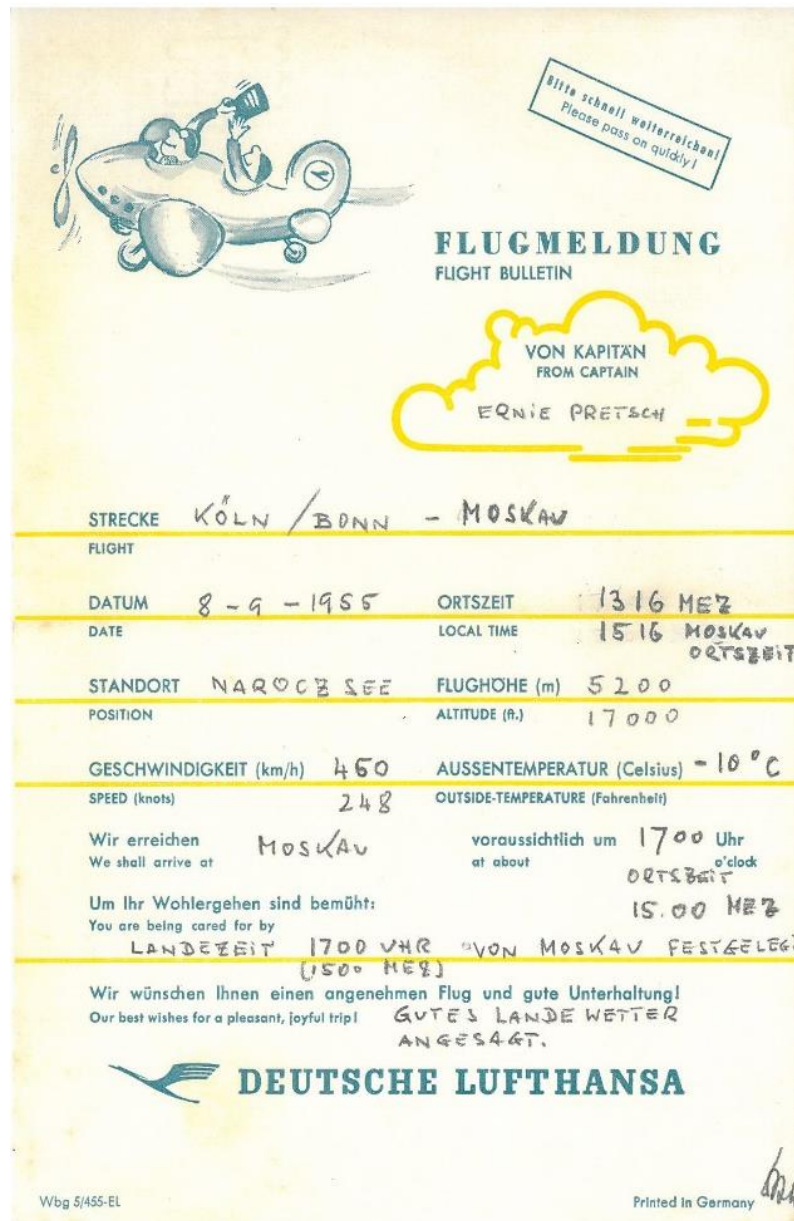 Bitte schnell weiterreichen!
Please pass on quickly!
FLUGMELDUNG
FLIGHT BULLETIN
VON KAPITÄN
FROM CAPTAIN
ERNIE PRETSCH
STRECKE KÖLN / BONN - MOSKAU
FLIGHT
DATUM 8-9-1955 ORTSZEIT 1316 MEZ
DATE LOCAL TIME 1516 MOSKAU
ORTSZEIT
STANDORT NAROCZ SEE FLUGHÖHE (m) 5200
POSITION ALTITUDE (ft.) 17000
GESCHWINDIGKEIT (km/h) 460 AUSSENTEMPERATUR (Celsius) -10°C
SPEED (knots) 248 OUTSIDE-TEMPERATURE (Fahrenheit)
Wir erreichen MOSKAU voraussichtlich um 1700 Uhr
We shall arrive at at about o'clock
ORTSZEIT
Um Ihr Wohlergehen sind bemüht: 15.00 MEZ
You are being cared for by
LANDEZEIT 1700 UHR VON MOSKAU FESTGELEGT
(1500 MEZ)
Wir wünschen Ihnen einen angenehmen Flug und gute Unterhaltung!
Our best wishes for a pleasant, joyful trip! GUTES LANDE WETTER
ANGESAGT.
DEUTSCHE LUFTHANSA
Wbg 5/455-EL Printed in Germany